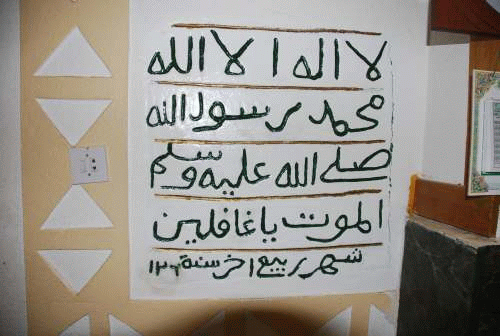 لا اله ا لا الله
محمد رسول الله
صلے الله عليه وسلم
الموت يا غافلين
شهر ربيع اخر سنة